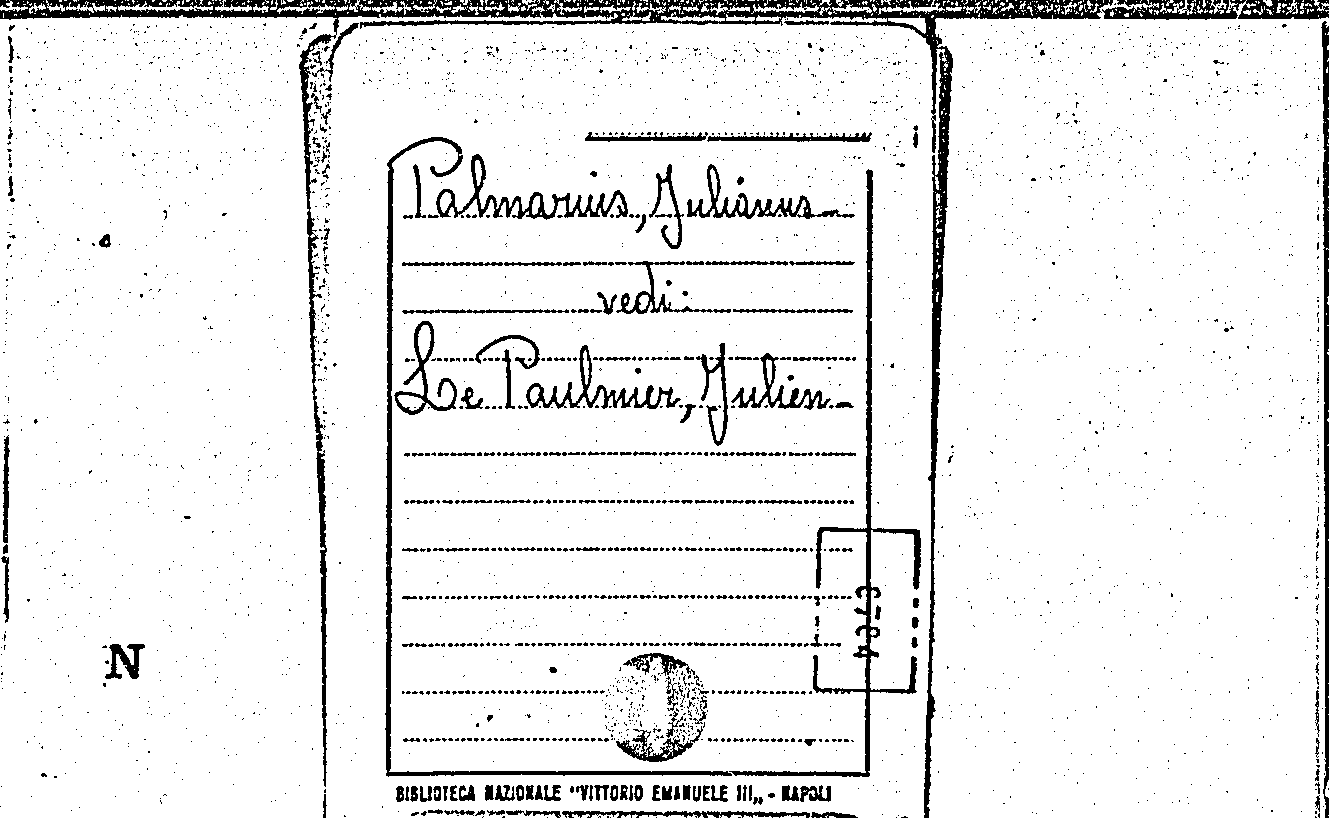 Palmarius, Julianus-
vedi:
Le Paulmier, Julien-
N
BIBLIOTECA NAZIONALE "VITTORIO EMANUELE III„ - NAPOLI